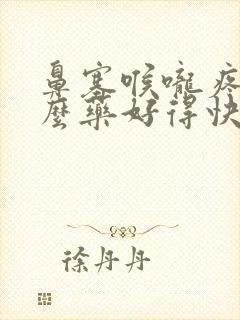 鼻塞喉嚨疼
麼藥好得快
徐丹丹